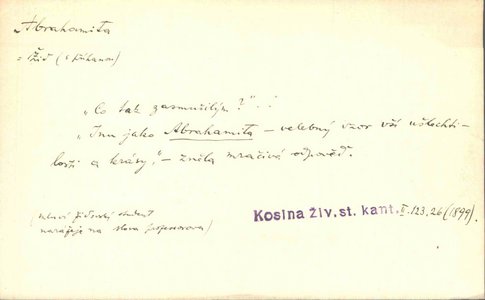 Abrahamita
= Žid (s příhanou)
„Co tak zasmušilým?" . :
„Inu jako Abrahamita – velebný vzor vší ušlechti-
losti a krásy," – zněla mračivá odpověď.
(mluví židovský student
naráží je na slova profesorova)
Kosina Živ. st. kant. II. 123, 26 (1899).